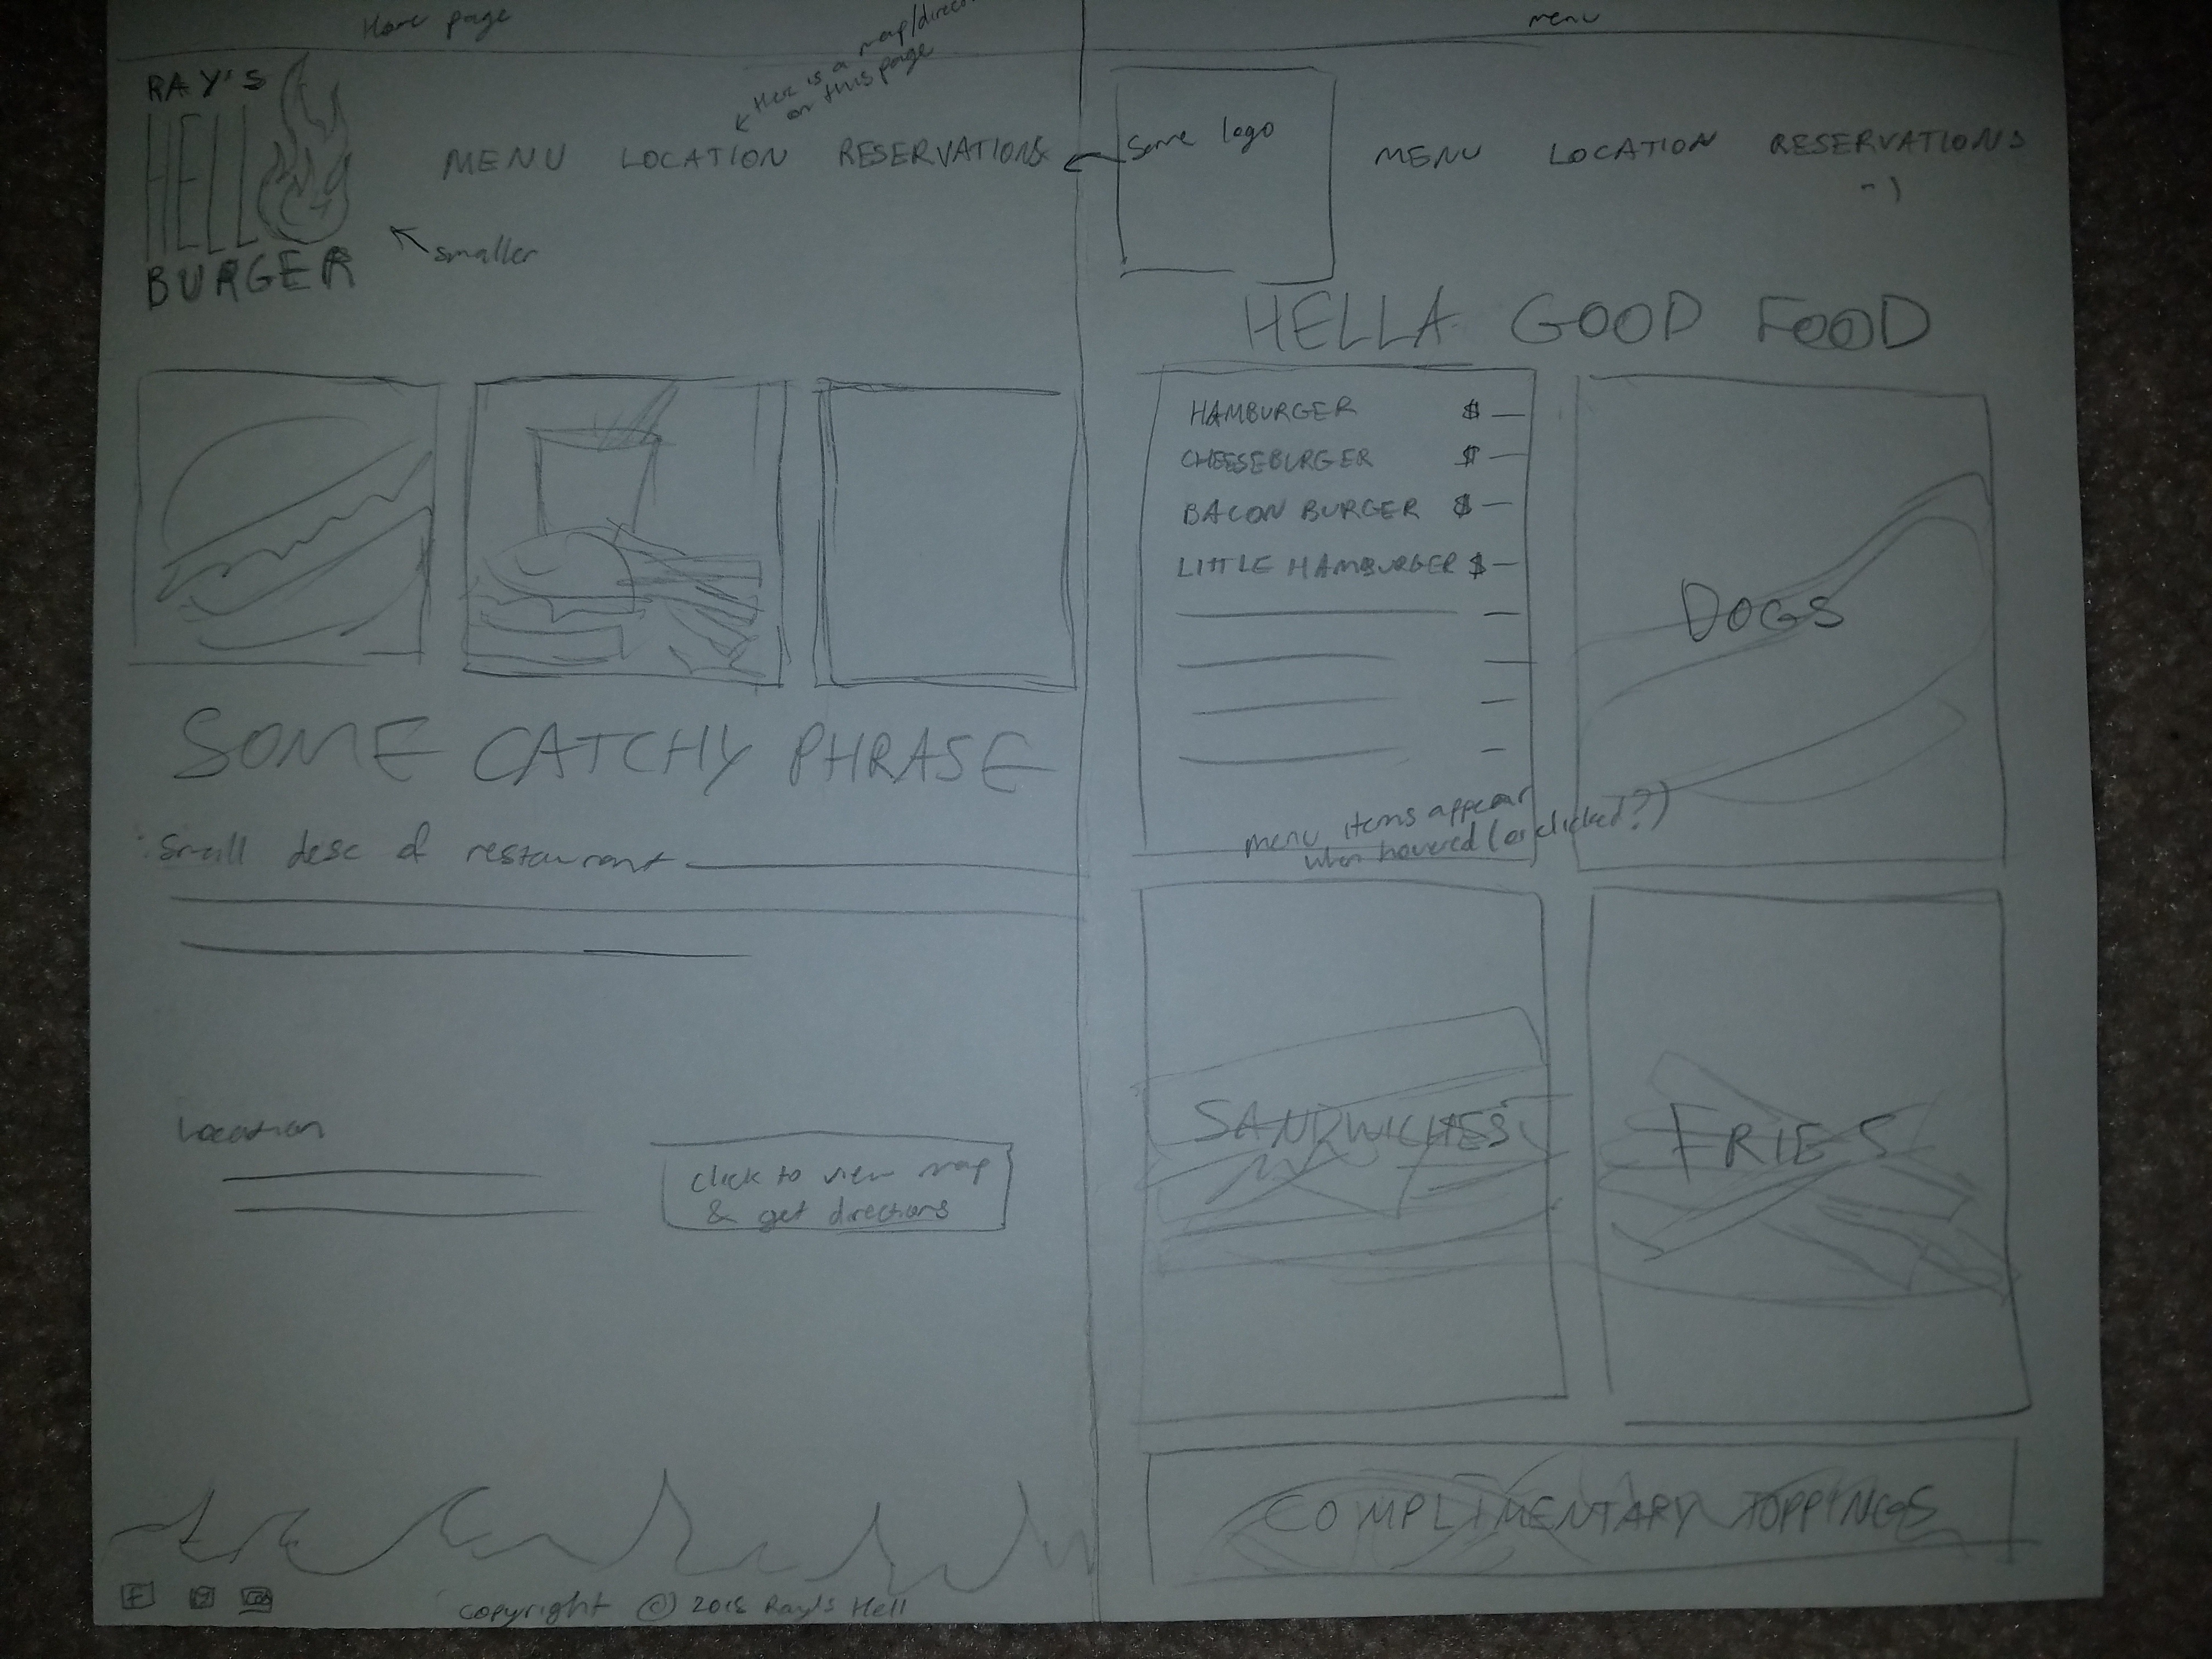 Home page
there is a map/direc
on this page
RAY'S
HELL
BURGER
smaller
MENU LOCATION RESERVATIONS
SOME CATCHY PHRASE
Small desc of restaurant
Location
click to view map
& get directions
F
copyright © 2015 Ray's Hell
menu
Same logo
MENU LOCATION RESERVATIONS
HELLA GOOD FOOD
HAMBURGER $
CHEESEBURGER $
BACON BURGER $
LITTLE HAMBURGER $
menu items appear
when hovered (or clicked?)
DOGS
SANDWICHES
FRIES
COMPLIMENTARY TOPPINGS